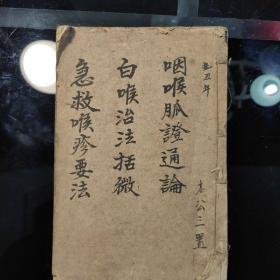 咽喉脈證通論
白喉治法括微
急救喉疹要法